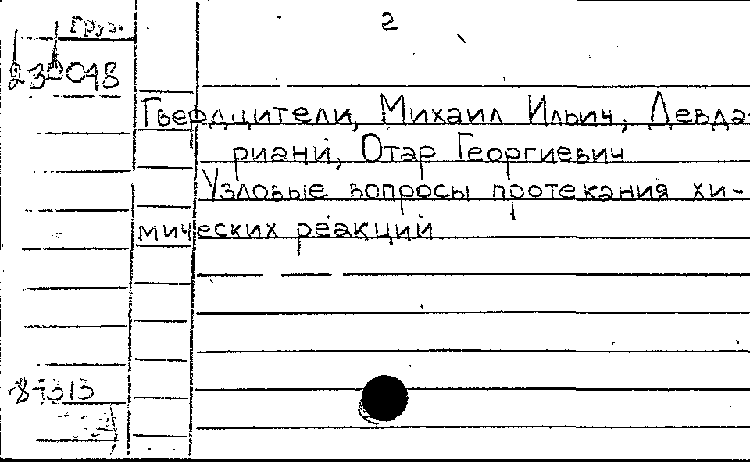 Груз. 2
230048
Гвердцители, Михаил Ильич, Девда-
риани, Отар Георгиевич
Узловые вопросы протекания хи-
мических реакций
87313